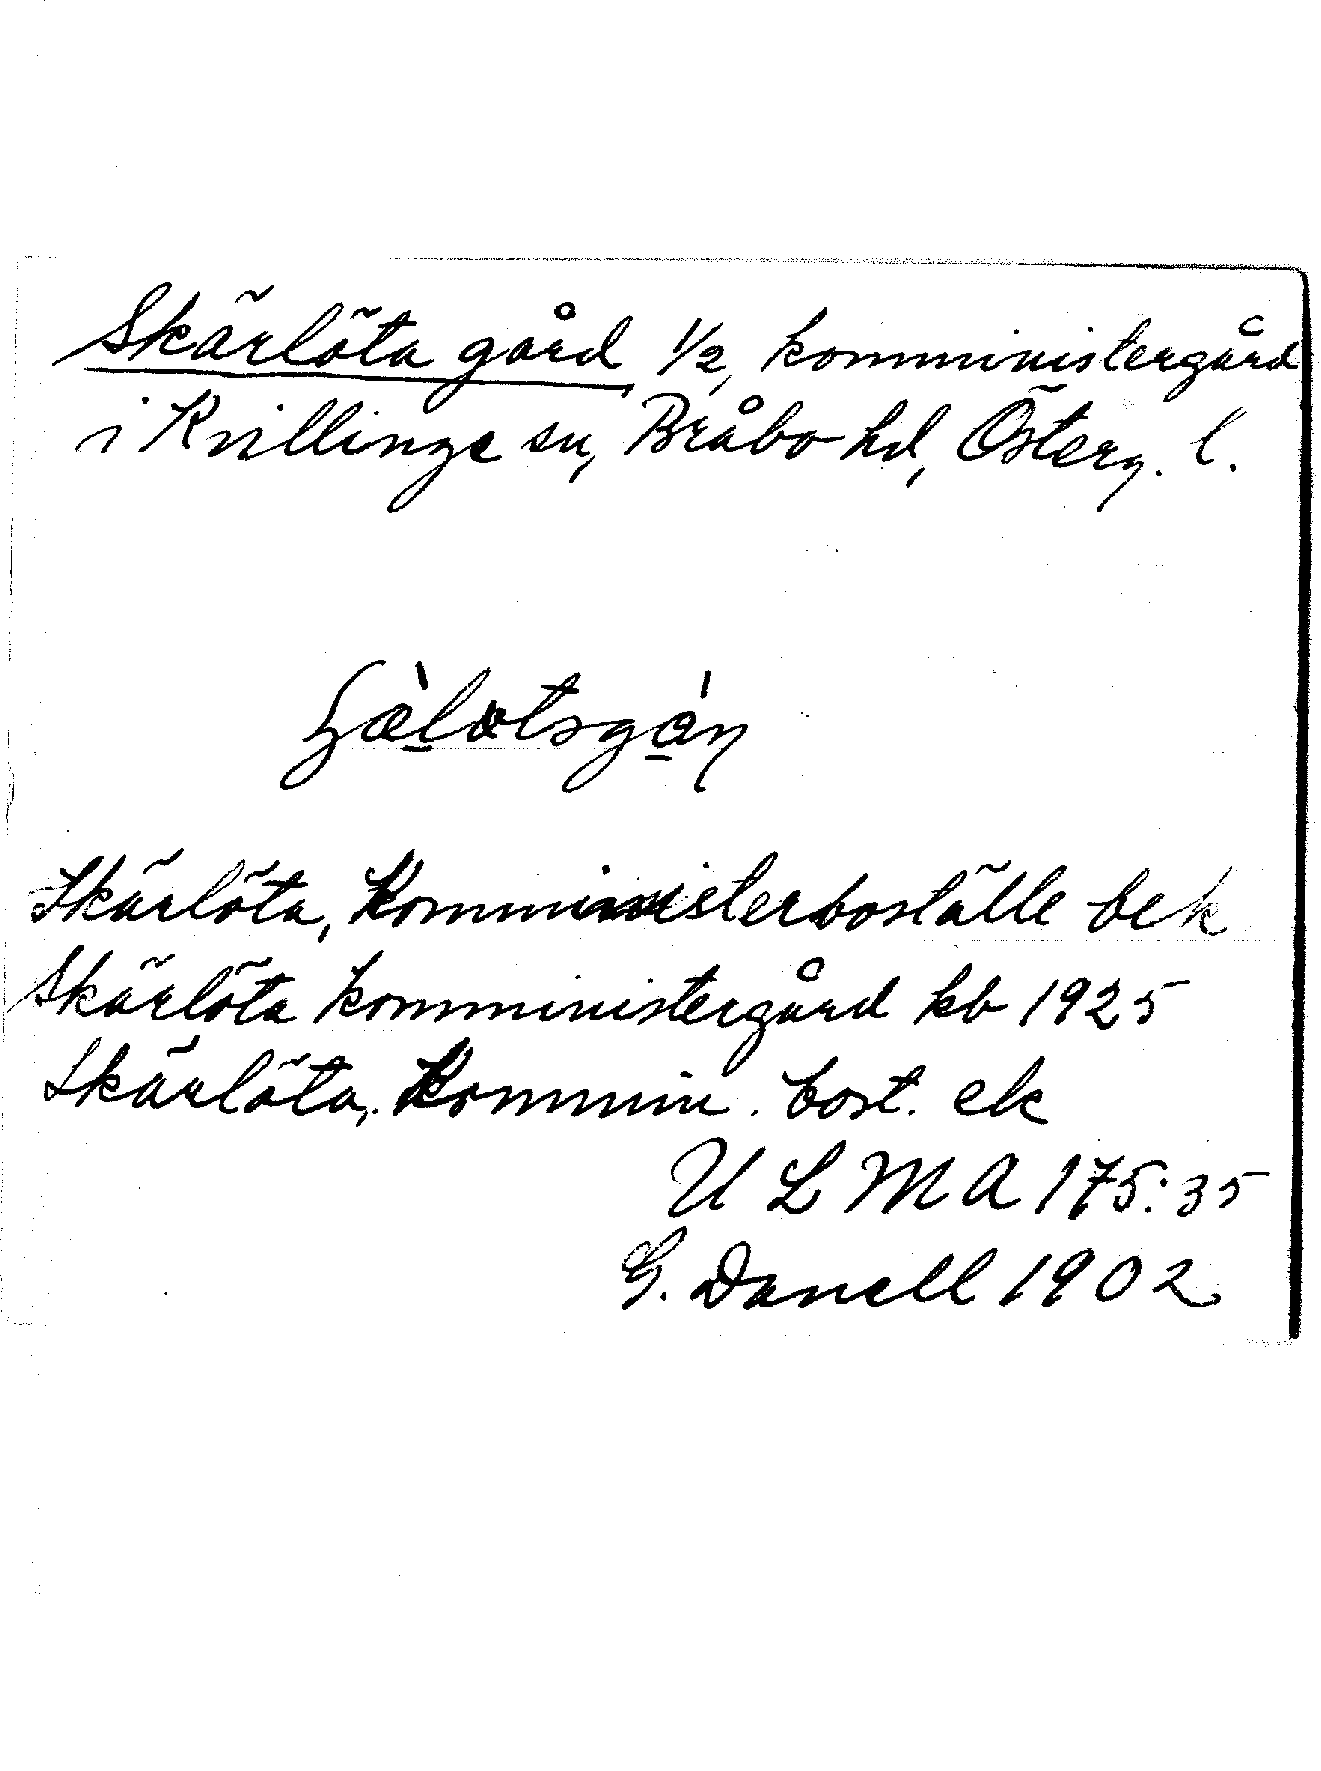 Skärlöta gård 1/2, komministergård
i Kvillinge sn, Bråbo hd, Österg. l.
Skärlöta, Komministerboställe bek
Skärlöta komministergård kb 1925
Skärlöta, Kommin. bost. ek
ULMA 175:35
G. Danell 1902